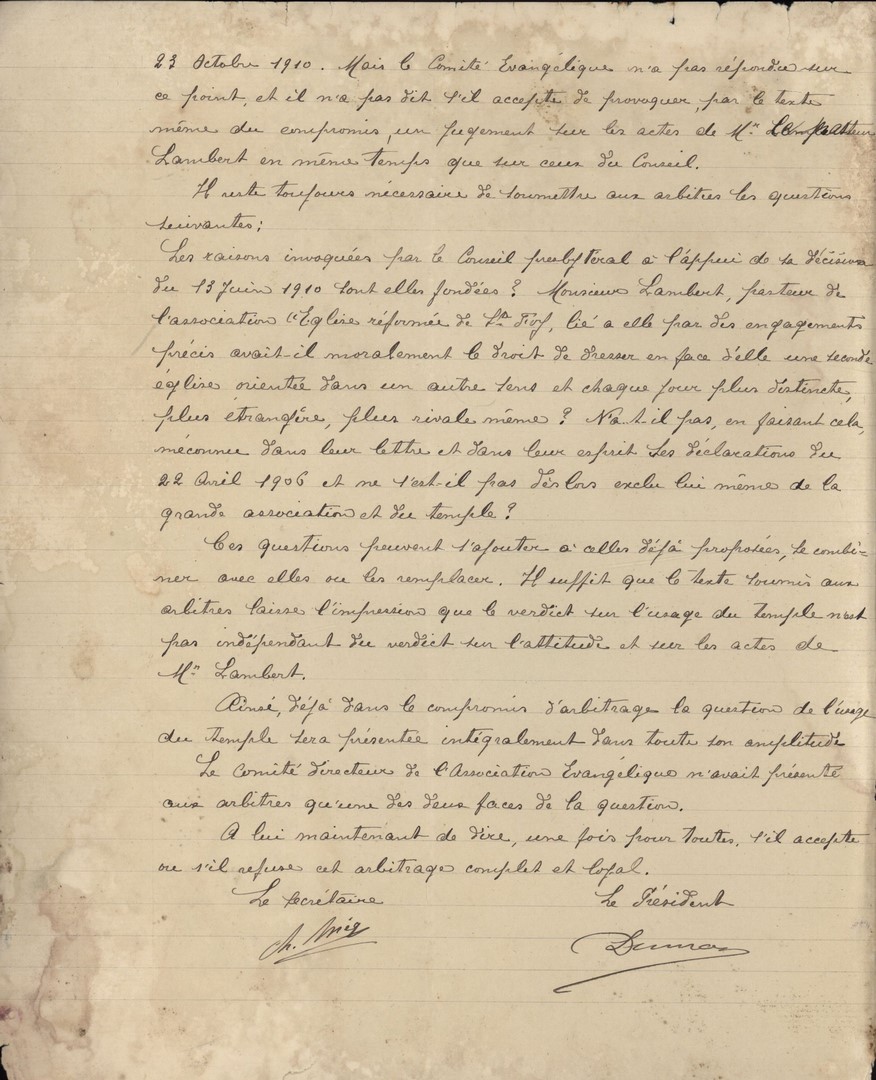 23 Octobre 1910. Mais le Comité Evangélique n'a pas répondu sur
ce point, et il n'a pas dit s'il accepte de provoquer, par le texte
même du compromis, un jugement sur les actes de Mr. le pasteur
Lambert en même temps que sur ceux du Conseil.
Il reste toujours nécessaire de soumettre aux arbitres les questions
suivantes:
Les raisons invoquées par le Conseil presbytéral à l'appui de sa décision
du 13 Juin 1910 sont elles fondées? Monsieur Lambert, pasteur de
l'association "Eglise réformée de Ste Foy, lié a elle par des engagements
précis avait-il moralement le droit de dresser en face d'elle une seconde
église orientée dans un autre sens et chaque jour plus distincte,
plus étrangère, plus rivale même? N'a-t-il pas, en faisant cela,
méconnu dans leur lettre et dans leur esprit les déclarations du
22 Avril 1906 et ne s'est-il pas dès lors exclu lui même de la
grande association et du temple?
Ces questions peuvent s'ajouter à celles déjà proposées, se combi=
ner avec elles ou les remplacer. Il suffit que le texte soumis aux
arbitres laisse l'impression que le verdict sur l'usage du temple n'est
pas indépendant du verdict sur l'attitude et sur les actes de
Mr. Lambert.
Ainsi, déjà dans le compromis d'arbitrage la question de l'usage
du temple sera présentée intégralement dans toute son amplitude
Le Comité directeur de l'Association Evangélique n'avait présenté
aux arbitres qu'une des deux faces de la question.
A lui maintenant de dire, une fois pour toutes, s'il accepte
ou s'il refuse cet arbitrage complet et loyal.
Le Secrétaire Le Président
Ch.